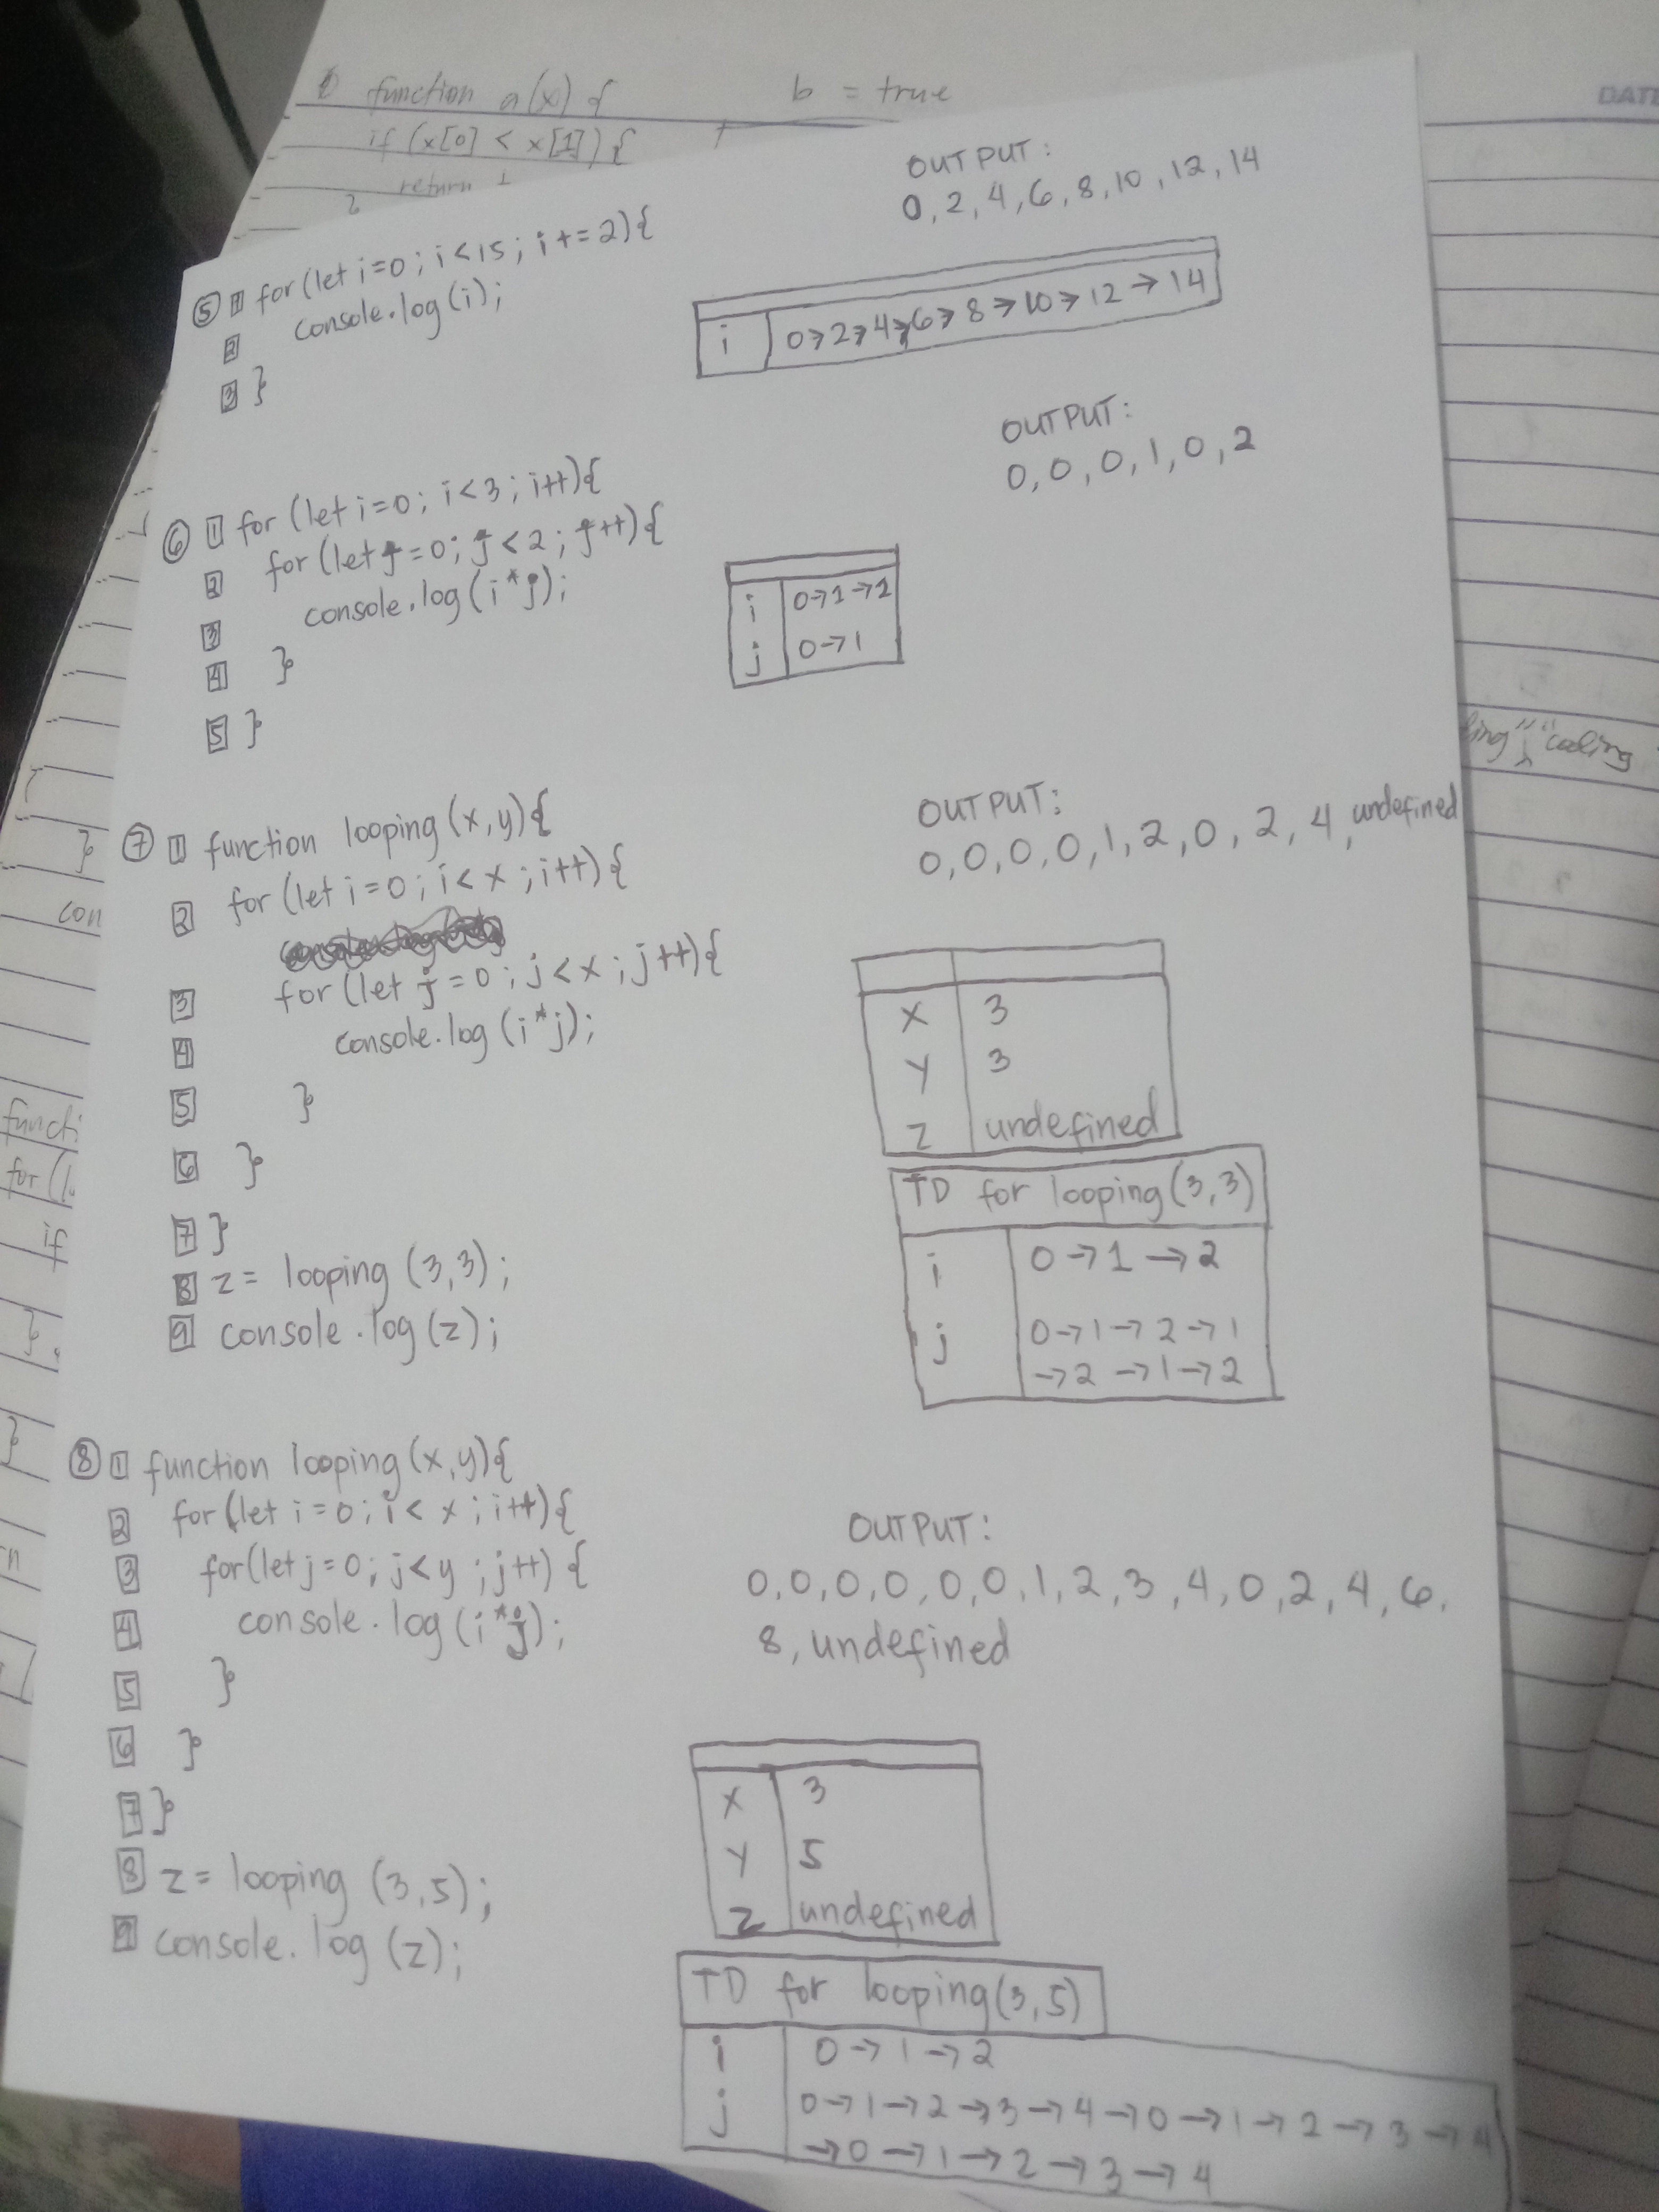 function a(x) {
b = true
if (x[0] < x[1]) {
return 1
DATE
OUTPUT:
0,2,4,6,8,10,12,14
⑤ 1 for(let i=0; i<15; i+=2){
2 console.log(i);
3 }
i 0→2→4→6→8→10→12→14
OUTPUT:
0,0,0,1,0,2
⑥ 1 for (let i=0; i<3; i++){
2 for (let j=0; j<2; j++){
3 console.log(i*j);
4 }
5 }
i 0→1→2
j 0→1
"coding
⑦ 1 function looping(x,y){
2 for (let i=0; i<x; i++){
3 for (let j=0; j<x; j++){
4 console.log(i*j);
5 }
6 }
7 }
8 z= looping (3,3);
9 console.log(z);
OUTPUT:
0,0,0,0,1,2,0,2,4, undefined
x 3
y 3
z undefined
TD for looping(3,3)
i 0→1→2
j 0→1→2→1
→2→1→2
}
con
functi
for (
if
}
}
⑧ 1 function looping(x,y){
2 for(let i=0; i<x; i++){
3 for(let j=0; j<y; j++) {
4 console.log(i*j);
5 }
6 }
7 }
8 z= looping (3,5);
9 console.log(z);
OUTPUT:
0,0,0,0,0,0,1,2,3,4,0,2,4,6,
8, undefined
x 3
y 5
z undefined
TD for looping(3,5)
i 0→1→2
j 0→1→2→3→4→0→1→2→3→4
→0→1→2→3→4